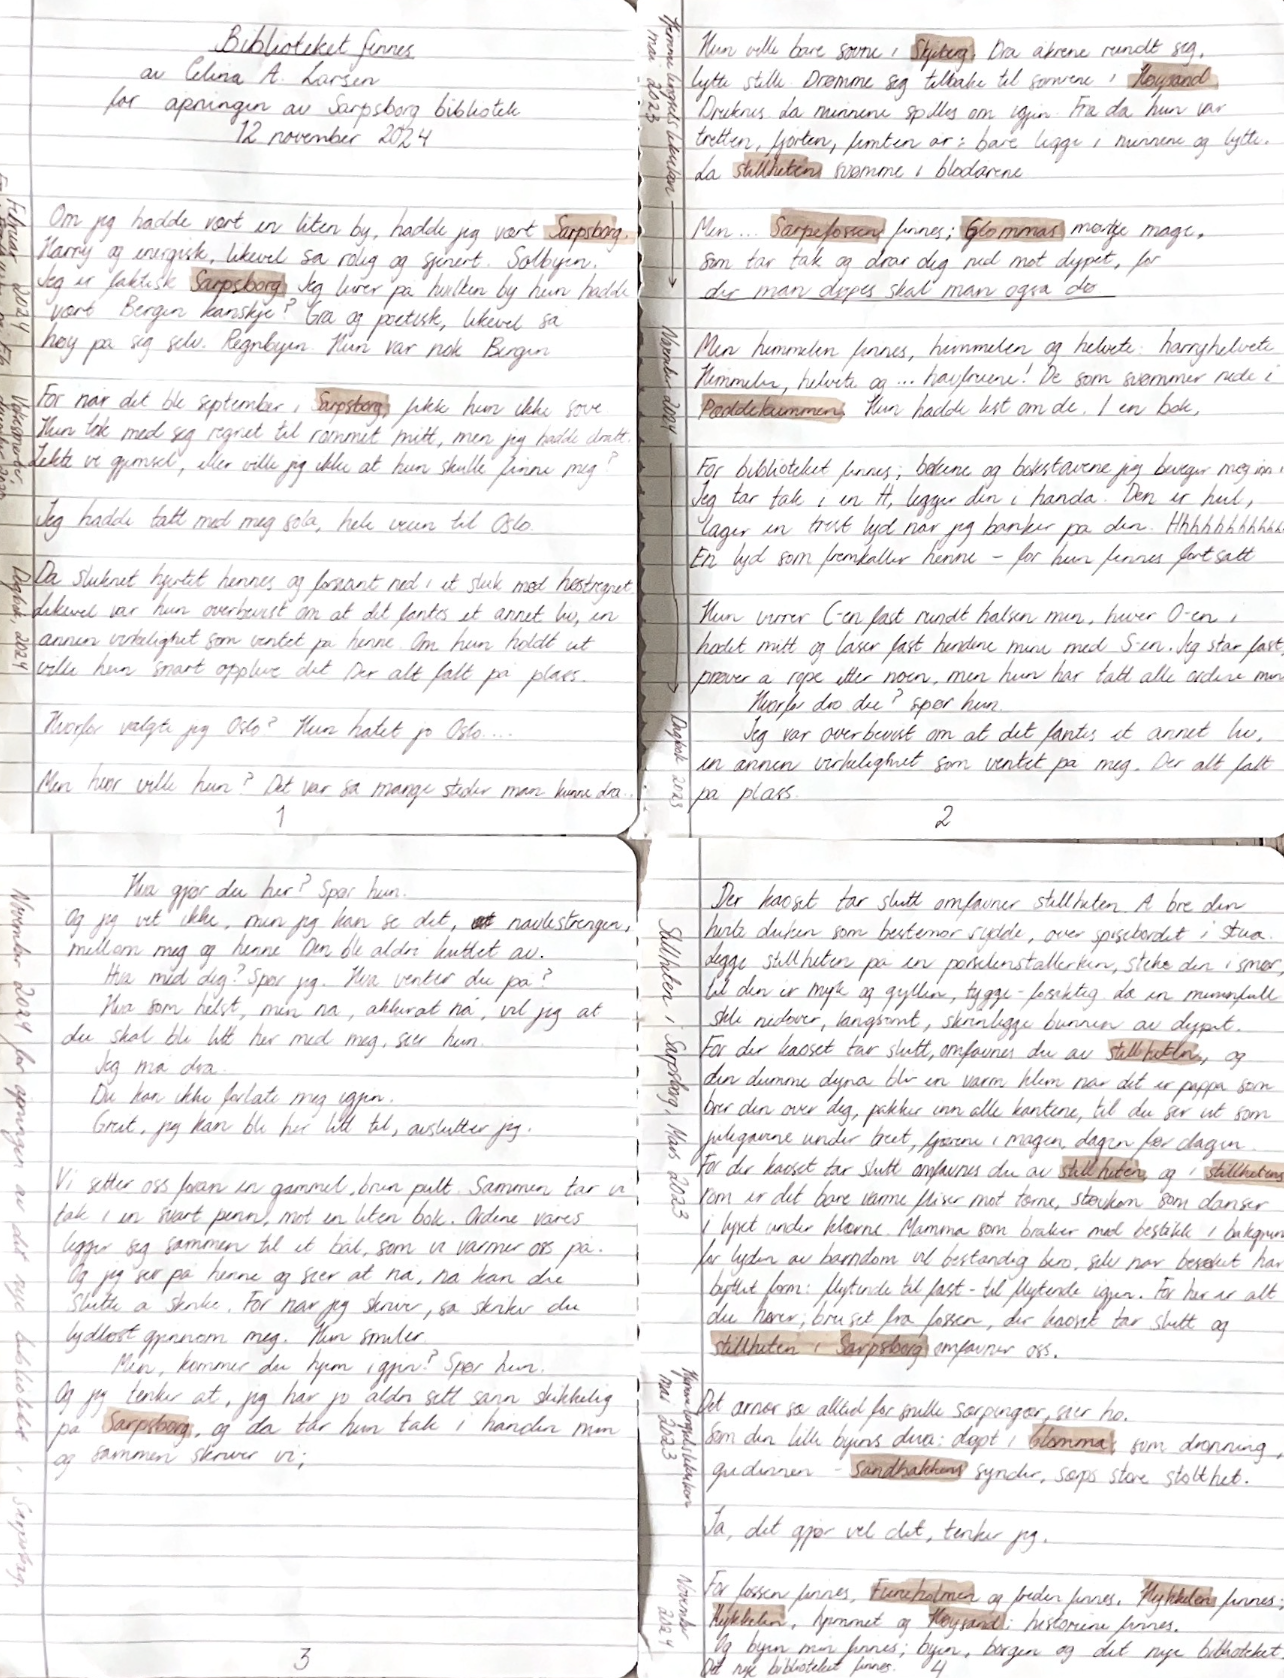 Biblioteket finnes
av Celina A. Larsen
for åpningen av Sarpsborg bibliotek
12 november 2024
Om jeg hadde vært en liten by, hadde jeg vært Sarpsborg.
Harry og energisk, likevel så rolig og sjenert. Solbyen.
Jeg er faktisk Sarpsborg. Jeg lurer på hvilken by hun hadde
vært. Bergen kanskje? Grå og poetisk, likevel så
høy på seg selv. Regnbyen. Hun var nok Bergen
For når det ble september i Sarpsborg, fikk hun ikke sove.
Hun tok med seg regnet til rommet mitt, men jeg hadde dratt.
Lekte vi gjemsel, eller ville jeg ikke at hun skulle finne meg?
Jeg hadde tatt med meg sola, hele veien til Oslo.
Da sluknet hjertet hennes og forsvant ned i et sluk med høstregnet.
Likevel var hun overbevist om at det fantes et annet liv, en
annen virkelighet som ventet på henne. Om hun holdt ut
ville hun snart oppleve det. Der alt falt på plass.
Hvorfor valgte jeg Oslo? Hun hatet jo Oslo...
Men hvor ville hun? Det var så mange steder man kunne dra.
1
Februar 2024
Dagbok, 2024
Hun ville bare sovne i Skjeberg. Dra åkrene rundt seg,
lytte stille. Drømme seg tilbake til somrene i Høysand
Druknes da minnene spilles om igjen. Fra da hun var
tretten, fjorten, femten år: bare ligge i minnene og lytte.
La stillheten svømme i blodårene
Men... Sarpefossen finnes; Glommas mørke mage,
som tar tak og drar deg ned mot dypet, for
der man døpes skal man også dø
Men himmelen finnes, himmelen og helvete: harryhelvete
Himmelen, helvete og ... havfruene! De som svømmer nede i
Paddekummen. Hun hadde lest om de. I en bok,
For biblioteket finnes; bøkene og bokstavene jeg beveger meg inn i
Jeg tar tak i en H, legger den i hånda. Den er hul,
lager en trist lyd når jeg banker på den. Hhhhhhhhhhh.
En lyd som fremkaller henne – for hun finnes fortsatt
Hun virrer C-en fast rundt halsen min, hiver O-en i
hodet mitt og låser fast hendene mine med S-en. Jeg står fast,
prøver å rope etter noen, men hun har tatt alle ordene mine
Hvorfor dro du? spør hun.
Jeg var overbevist om at det fantes et annet liv,
en annen virkelighet som ventet på meg. Der alt falt
på plass.
2
mai 2023
November 2024
Dagbok 2023
Hva gjør du her? Spør hun.
Og jeg vet ikke, men jeg kan se det, navlestrengen,
mellom meg og henne. Den ble aldri kuttet av.
Hva med deg? Spør jeg. Hva venter du på?
Hva som helst, men nå, akkurat nå, vil jeg at
du skal bli litt her med meg, sier hun.
Jeg må dra.
Du kan ikke forlate meg igjen.
Greit, jeg kan bli her litt til, avslutter jeg.
Vi setter oss foran en gammel, brun pult. Sammen tar vi
tak i en svart penn, mot en liten bok. Ordene våres
legger seg sammen til et bål, som vi varmer oss på.
Og jeg ser på henne og sier at nå, nå kan du
slutte å skrike. For når jeg skriver, så skriker du
lydløst gjennom meg. Hun smiler.
Men, kommer du hjem igjen? Spør hun.
Og jeg tenker at, jeg har jo aldri sett sånn skikkelig
på Sarpsborg, og da tar hun tak i hånden min
og sammen skriver vi;
3
November 2024 for åpningen av det nye biblioteket i Sarpsborg.
Der kaoset tar slutt omfavner stillheten. Å bre den
hvite duken som bestemor sydde, over spisebordet i stua.
Legge stillheten på en porselenstallerken, steke den i smør,
til den er myk og gyllen, tygge - forsiktig da en munnfull
skli nedover, langsomt, skrinlegge bunnen av dypet.
For der kaoset tar slutt, omfavnes du av stillheten, og
den dumme dyna blir en varm klem når det er pappa som
brer den over deg, pakker inn alle kantene, til du ser ut som
julegavene under treet, fjærene i magen, dagen før dagen.
For der kaoset tar slutt omfavnes du av stillheten, og i stillhetens
rom er det bare varme fliser mot tærne, støvkorn som danser
i lyset under klærne. Mamma som bråker med bestikk i bakgrunn
for lyden av barndom vil bestandig bero, selv når besøket har
byttet form: flytende til fast - til flytende igjen. For her er alt
du hører; bruset fra fossen, der kaoset tar slutt og
stillheten i Sarpsborg omfavner oss.
Det ornær sæ alltid for snille sarpinger, sier ho.
Som den lille byens diva: døpt i Glomma, som dronning,
gudinnen - Sandbakkens synder, Sarps store stolthet.
Ja, det gjør vel det, tenker jeg.
For fossen finnes, Tuneholmen og freden finnes. Nykkelen finnes;
Nykkelen, hjemmet og Høysand; historiene finnes.
Og byen min finnes; byen, borgen og det nye biblioteket.
Det nye biblioteket finnes.
4
Stillheten i Sarpsborg, Mars 2023
mai 2023
November 2024